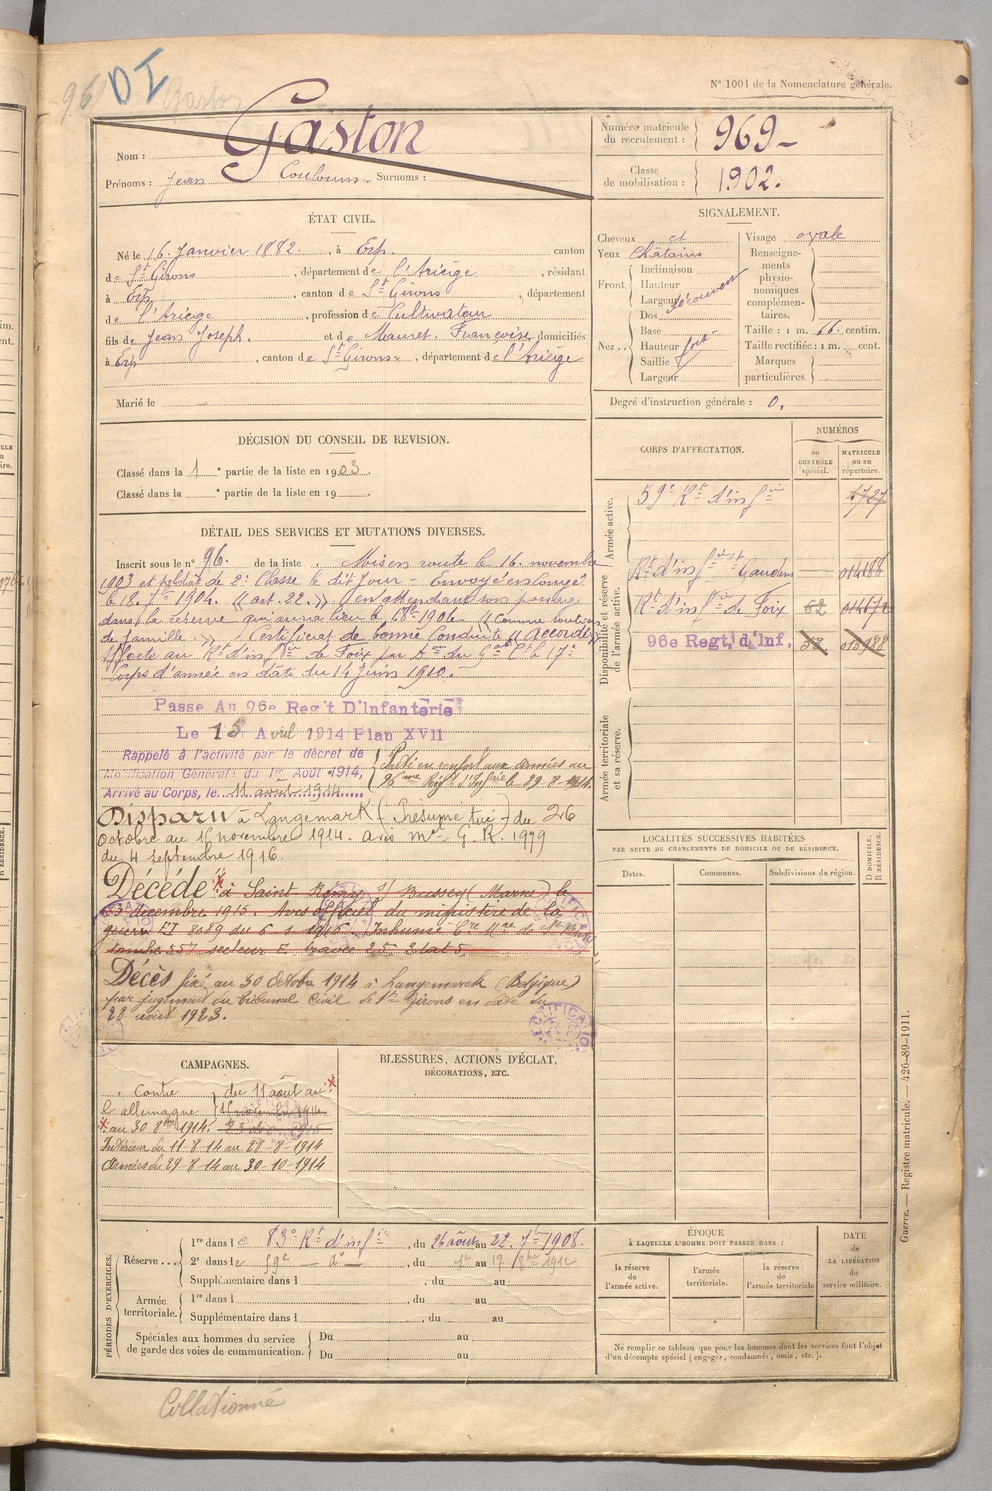 969 DI Gaston
N° 1001 de la Nomenclature générale.
Nom : Gaston
Prénoms : Jean Couloum. Surnoms :
Numéro matricule du recrutement : 969
Classe de mobilisation : 1902.
ÉTAT CIVIL.
Né le 16 Janvier 1882, à Erp canton
de St Girons, département de l'Ariège, résidant
à Erp, canton de St Girons, département
de l'Ariège, profession de Cultivateur
fils de Jean Joseph. et de Mauret Françoise domiciliés
à Erp, canton de St Girons, département de l'Ariège
Marié le
SIGNALEMENT.
Cheveux et
Yeux châtains
Front. Inclinaison
Hauteur
Largeur découvert
Nez.. Dos
Base
Hauteur fort
Saillie
Largeur
Visage ovale
Renseignements physionomiques complémentaires.
Taille : 1 m. 66 centim.
Taille rectifiée : 1 m. cent.
Marques particulières.
Degré d'instruction générale : 0.
DÉCISION DU CONSEIL DE REVISION.
Classé dans la 1 e partie de la liste en 1903.
Classé dans la e partie de la liste en 19
CORPS D'AFFECTATION.
NUMÉROS
au CONTRÔLE spécial.
MATRICULE ou au répertoire.
Armée active.
59e Rt d'infie 4727
Disponibilité et réserve de l'armée active.
Rt d'infie St Gaudens 014188
Rt d'infie de Foix 62
96e Regt d'Inf.
Armée territoriale et sa réserve.
DÉTAIL DES SERVICES ET MUTATIONS DIVERSES.
Inscrit sous le n° 96. de la liste. Mis en route le 16 novembre
1903 et soldat de 2e Classe le dit jour – Envoyé en congé
le 18 7bre 1904. «art. 22.» en attendant son passage
dans la réserve qui aura lieu le 1906 «Comme soutien
de famille.» Certificat de bonne Conduite «accordé»
Affecté au Rt d'infie de Foix par du Gal Ct le 17e
Corps d'armée en date du 14 Juin 1910.
Passe Au 96e Reg't D'Infanterie
Le 15 Avril 1914 Plan XVII
Rappelé à l'activité par le décret de
Mobilisation Générale du 1er Août 1914,
Arrivé au Corps, le 11 août 1914
Parti en renfort aux armées au
96me Régt d'Infrie le 29-8-1914.
Disparu à Langemark (Présumé tué) du 26
octobre au 16 novembre 1914. avis mel G. K. 1979
du 4 septembre 1916.
Décédé à Saint Remy s/ Bussey (Marne) le
23 décembre 1915. Avis officiel du ministère de la
guerre FI 8089 du 6 1 1916. Inhumé Cre Mre de St Remy
tombe 557 secteur E travée 25 Etat 5
Décès fixé au 30 Octobre 1914 à Langemarck (Belgique)
par jugement du Tribunal Civil de St Girons en date du
28 août 1923.
RECTIFICATION
LOCALITÉS SUCCESSIVES HABITÉES
PAR SUITE DE CHANGEMENTS DE DOMICILE OU DE RÉSIDENCE.
Dates. Communes. Subdivisions du région. D DOMICILE. R RÉSIDENCE.
CAMPAGNES.
Contre l'allemagne du 11 août au
15 novembre 1914
au 30 8bre 1914. 23 déc. 1915
Intérieur du 11-8-14 au 28-8-1914
Armées du 29-8-14 au 30-10-1914
BLESSURES, ACTIONS D'ÉCLAT,
DÉCORATIONS, ETC.
PÉRIODES D'EXERCICES.
Réserve... 1re dans le 83e Rt d'infie, du 26 août au 22 7bre 1908.
2e dans le 59e do, du 1er au 17 1912
Supplémentaire dans l , du au
Armée territoriale. 1re dans l , du au
Supplémentaire dans l , du au
Spéciales aux hommes du service de garde des voies de communication. Du au
Du au
ÉPOQUE
À LAQUELLE L'HOMME DOIT PASSER DANS :
la réserve de l'armée active.
l'armée territoriale.
la réserve de l'armée territoriale
DATE
de
LA LIBÉRATION
du
service militaire.
Ne remplir ce tableau que pour les hommes dont les services font l'objet
d'un décompte spécial (engagés, condamnés, omis, etc.).
Guerre. — Registre matricule. — 426-89-1911.
Collationné